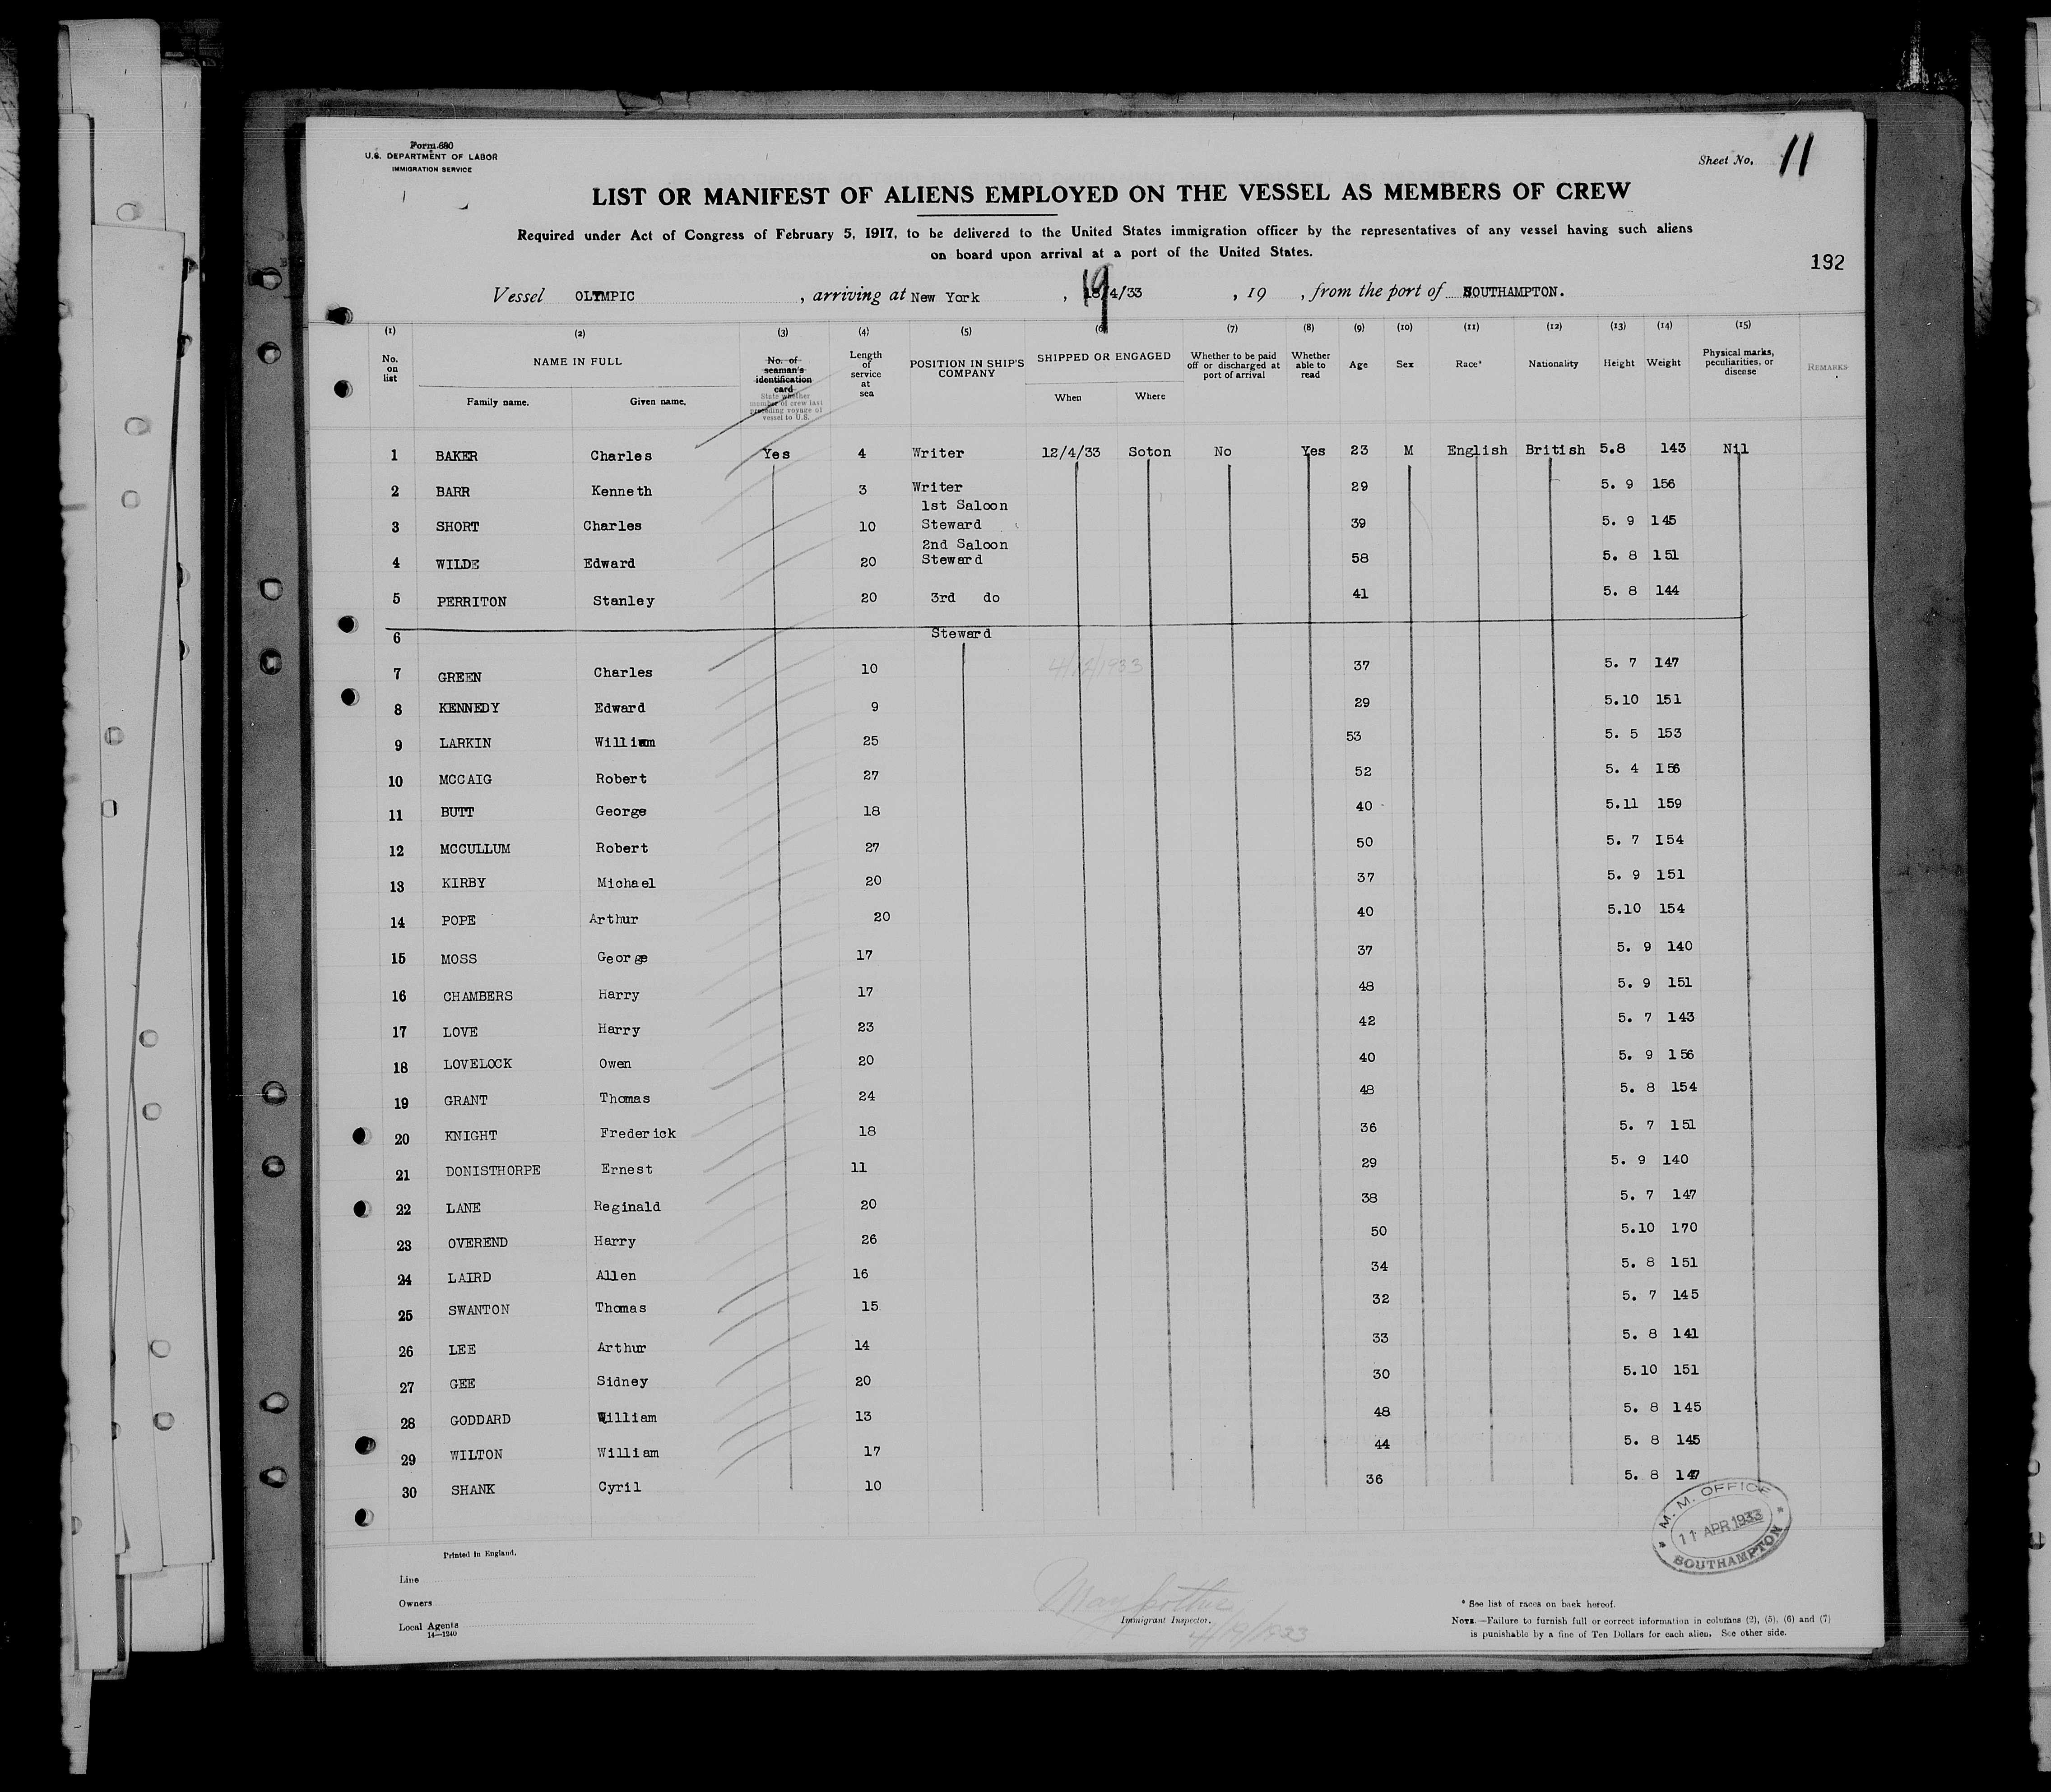 Form 680
U.S. DEPARTMENT OF LABOR
IMMIGRATION SERVICE
Sheet No. 11
LIST OR MANIFEST OF ALIENS EMPLOYED ON THE VESSEL AS MEMBERS OF CREW
Required under Act of Congress of February 5, 1917, to be delivered to the United States immigration officer by the representatives of any vessel having such aliens
on board upon arrival at a port of the United States.
192
Vessel OLYMPIC , arriving at New York , 19/4/33 , 19 , from the port of SOUTHAMPTON.
(1) (2) (3) (4) (5) (6) (7) (8) (9) (10) (11) (12) (13) (14) (15)
No. on list NAME IN FULL Family name. Given name. No. of seaman's identification card State whether member of crew last preceding voyage of vessel to U.S. Length of service at sea POSITION IN SHIP'S COMPANY SHIPPED OR ENGAGED When Where Whether to be paid off or discharged at port of arrival Whether able to read Age Sex Race* Nationality Height Weight Physical marks, peculiarities, or disease REMARKS
1 BAKER Charles Yes 4 Writer 12/4/33 Soton No Yes 23 M English British 5.8 143 Nil
2 BARR Kenneth 3 Writer 29 5. 9 156
3 SHORT Charles 10 1st Saloon Steward 39 5. 9 145
4 WILDE Edward 20 2nd Saloon Steward 58 5. 8 151
5 PERRITON Stanley 20 3rd do 41 5. 8 144
6 Steward
7 GREEN Charles 10 4/12/1933 37 5. 7 147
8 KENNEDY Edward 9 29 5.10 151
9 LARKIN William 25 53 5. 5 153
10 MCCAIG Robert 27 52 5. 4 156
11 BUTT George 18 40 5.11 159
12 MCCULLUM Robert 27 50 5. 7 154
13 KIRBY Michael 20 37 5. 9 151
14 POPE Arthur 20 40 5.10 154
15 MOSS George 17 37 5. 9 140
16 CHAMBERS Harry 17 48 5. 9 151
17 LOVE Harry 23 42 5. 7 143
18 LOVELOCK Owen 20 40 5. 9 156
19 GRANT Thomas 24 48 5. 8 154
20 KNIGHT Frederick 18 36 5. 7 151
21 DONISTHORPE Ernest 11 29 5. 9 140
22 LANE Reginald 20 38 5. 7 147
23 OVEREND Harry 26 50 5.10 170
24 LAIRD Allen 16 34 5. 8 151
25 SWANTON Thomas 15 32 5. 7 145
26 LEE Arthur 14 33 5. 8 141
27 GEE Sidney 20 30 5.10 151
28 GODDARD William 13 48 5. 8 145
29 WILTON William 17 44 5. 8 145
30 SHANK Cyril 10 36 5. 8 147
M. M. OFFICE
11 APR 1933
SOUTHAMPTON
Printed in England.
Line
Owners
Local Agents
14—1240
Immigrant Inspector.
4/19/1933
* See list of races on back hereof.
NOTE.—Failure to furnish full or correct information in columns (2), (5), (6) and (7)
is punishable by a fine of Ten Dollars for each alien. See other side.